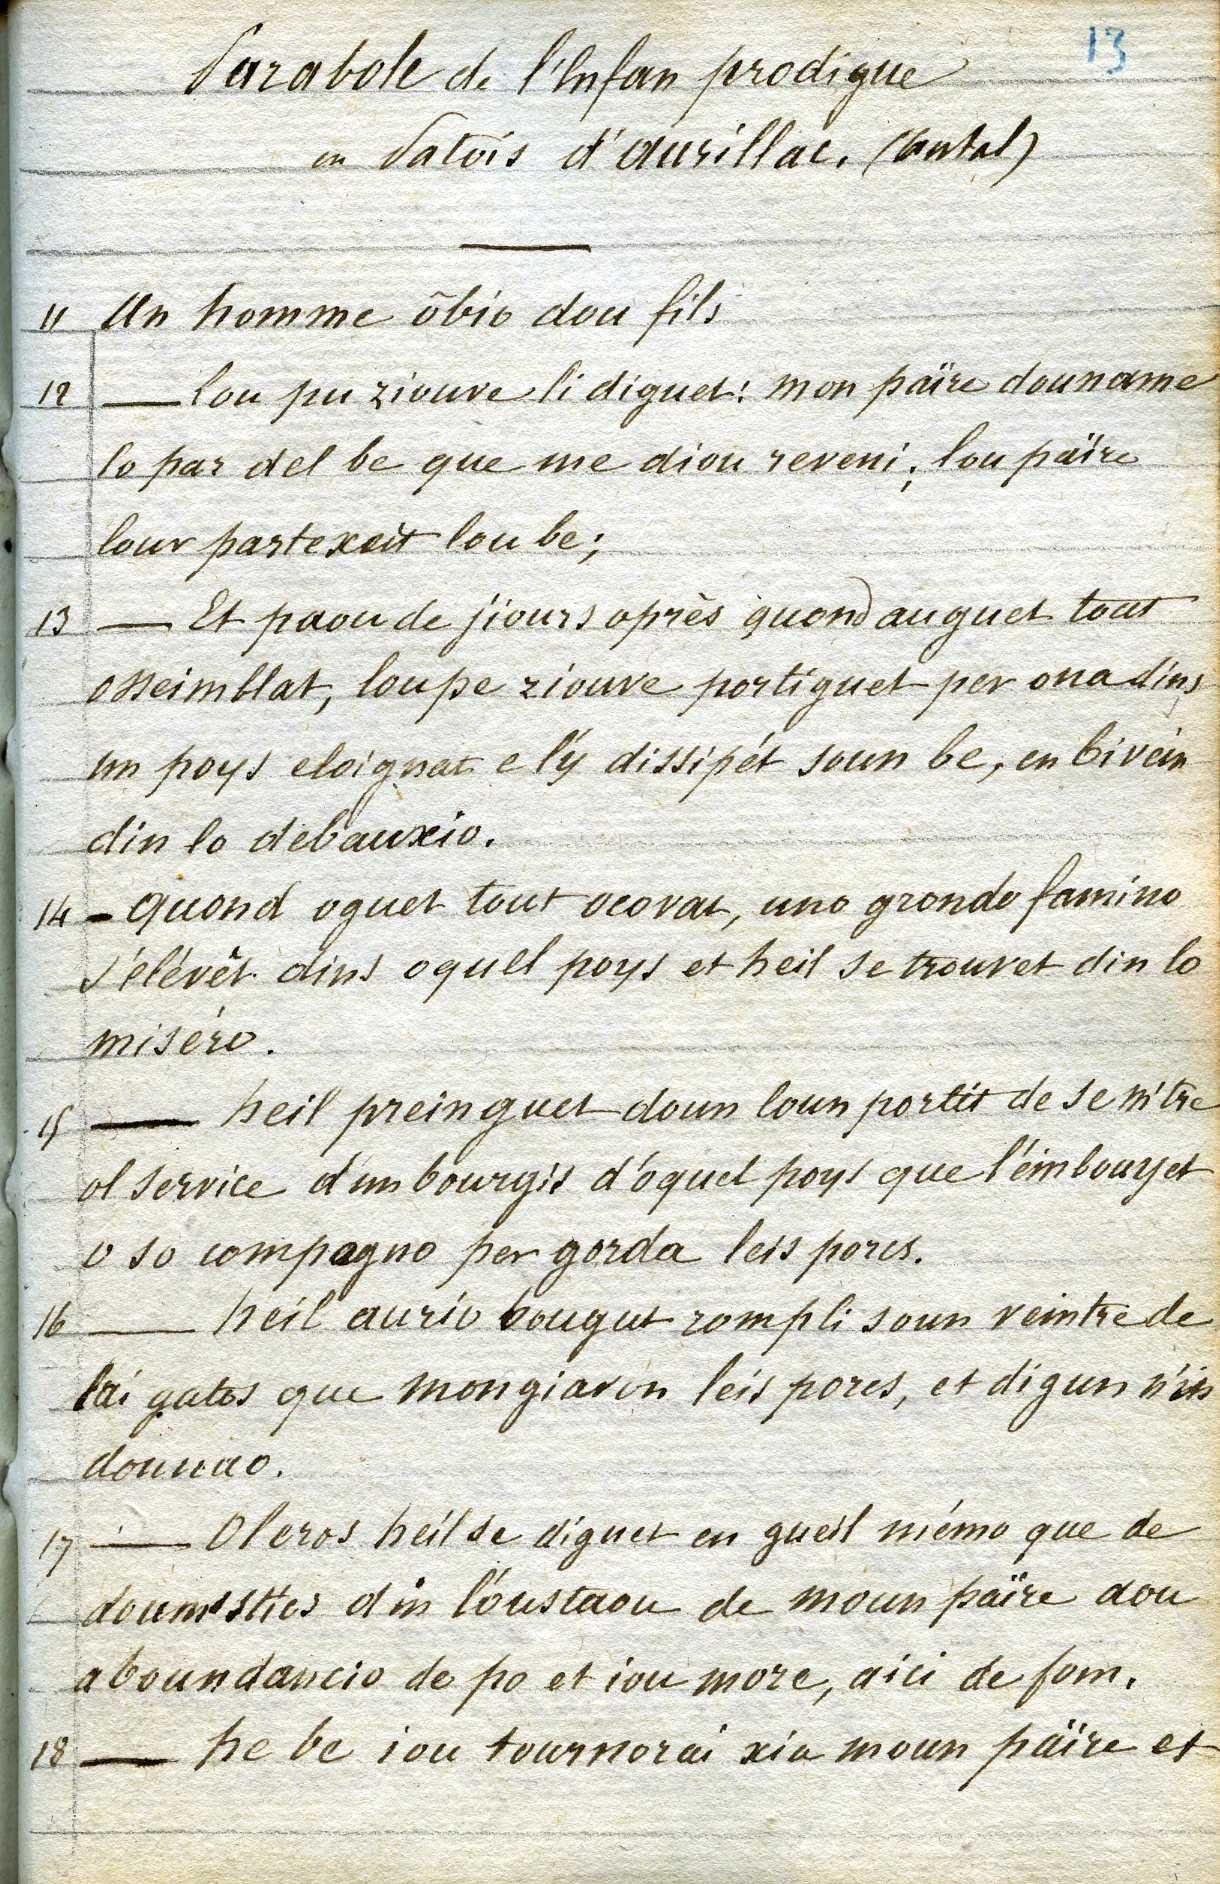 13
Parabole de l'Enfan prodigue
en Patois d'aurillac. (Cantal)
11 Un homme ōbio dou fils
12 — lou pu ziouve li diguet: mon païre douname
lo par del be que me diou reveni; lou païre
lour partexèt lou be;
13 — Et paou de jiours oprès quond auguet tout
osseimblat, lou pe ziouve portiguet per ona dins
un poys eloignat e l'y dissipét soun be, en bivein
din lo debauxio.
14 — quond oguet tout ocovat, uno grondo famino
s'élévêt dins oquel poys et heil se trouvet din lo
miséro.
15 — heil preinguet doun loun portit de se m'tre
ol service d'un bourgis d'oquel poys que l'éimbouyet
o so compagno per gorda leis porcs.
16 — heil aurio bougut rompli soun veintre de
lai gatos que mongiavon leis porcs, et digun n'in
dounao.
17 — Oleros heil se diguet en gueil mémo que de
doumstios din l'oustaou de moun païre aou
aboundancio de po et iou more, aici de fom.
18 — he be iou tournorai xia moun païre et